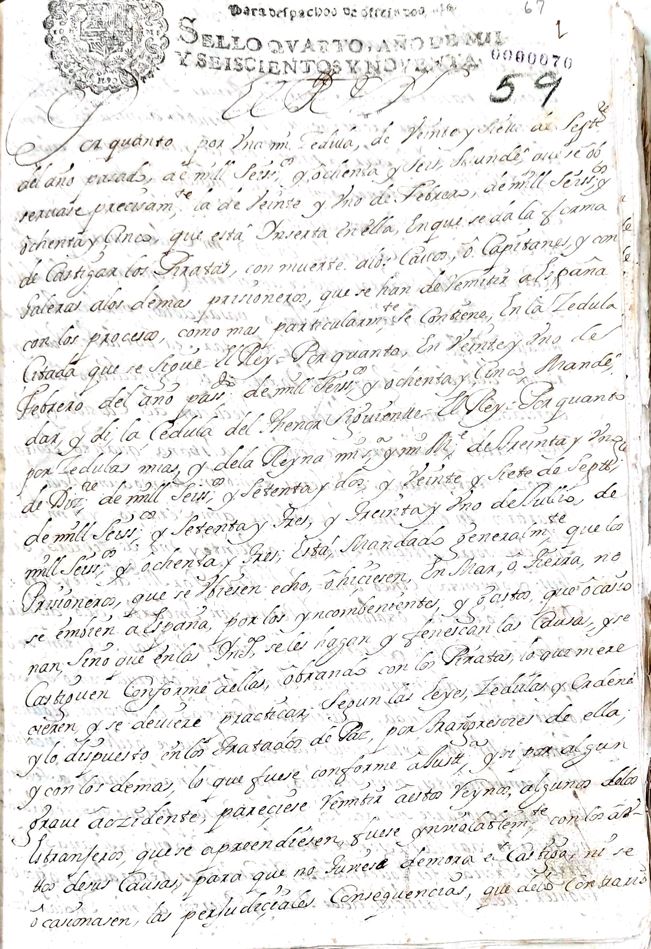 Para despachos de oficio dos mrs.
67
SELLO QVARTO, AÑO DE MIL
Y SEISCIENTOS Y NOVENTA.
0000070
59
El Rey
Por quanto, por Vna mi Zedula, de Veinte y Siete de Septre
del año pasado, de mill Seisos y ochenta y Seis, Mande, que se ob
servase precisamte la de Veinte y Vno de Febrero, de mill Seisos y
ochenta y Cinco, que está Ynserta en ella, en que se da la forma
de Castigar los Piratas, con muerte a los Cavos, ó Capitanes, y con
Galeras a los demas prisioneros, que se han de Remitir a España
con los procesos, como mas particularmte se Contiene, En la Zedula
Citada que se sigue El Rey = Por quanto, En Veinte y Vno de
Febrero del año passdo de mill Seisos y ochenta y Cinco, Mandé
dar, y di la Cedula del thenor siguiente = El Rey = Por quanto
por Zedulas mias, y de la Reyna mi sa y mi Me de Treinta y Vno
de Dizre de mill Seisos y Setenta y dos, y Veinte y Siete de Septre
de mill Seisos y Setenta y Tres, y Treinta y Vno de Jullio, de
mill Seisos y ochenta y Tres, Está, Mandado generalmte que los
Prisioneros, que se Vbiesen echo, ó hiciesen, En Mar, ó Tierra, no
se embien a España, por los yncombenientes, y Gastos, que ocasio
nan, Sino que en las Yndˢ se les hagan y fenescan las Causas, y se
Castiguen Conforme a ellas, obrando con los Piratas, lo que mere
cieren y se deviere practicar Segun las leyes, Zedulas y Ordene
y lo dispuesto en los Tratados de Paz, por Transgresores de ella,
y con los demas, lo que fuese conforme a Justa y si por algun
grave accidente, pareciese Remitir a estos Reynos, algunos de los
Estranferos, que se apreendiesen, fuese ynviolablemte con los Au-
tos de sus Causas, para que no tuviese demora el Castigo, ni se
ocasionasen, las perjudiciales Consequencias, que de lo Contrario